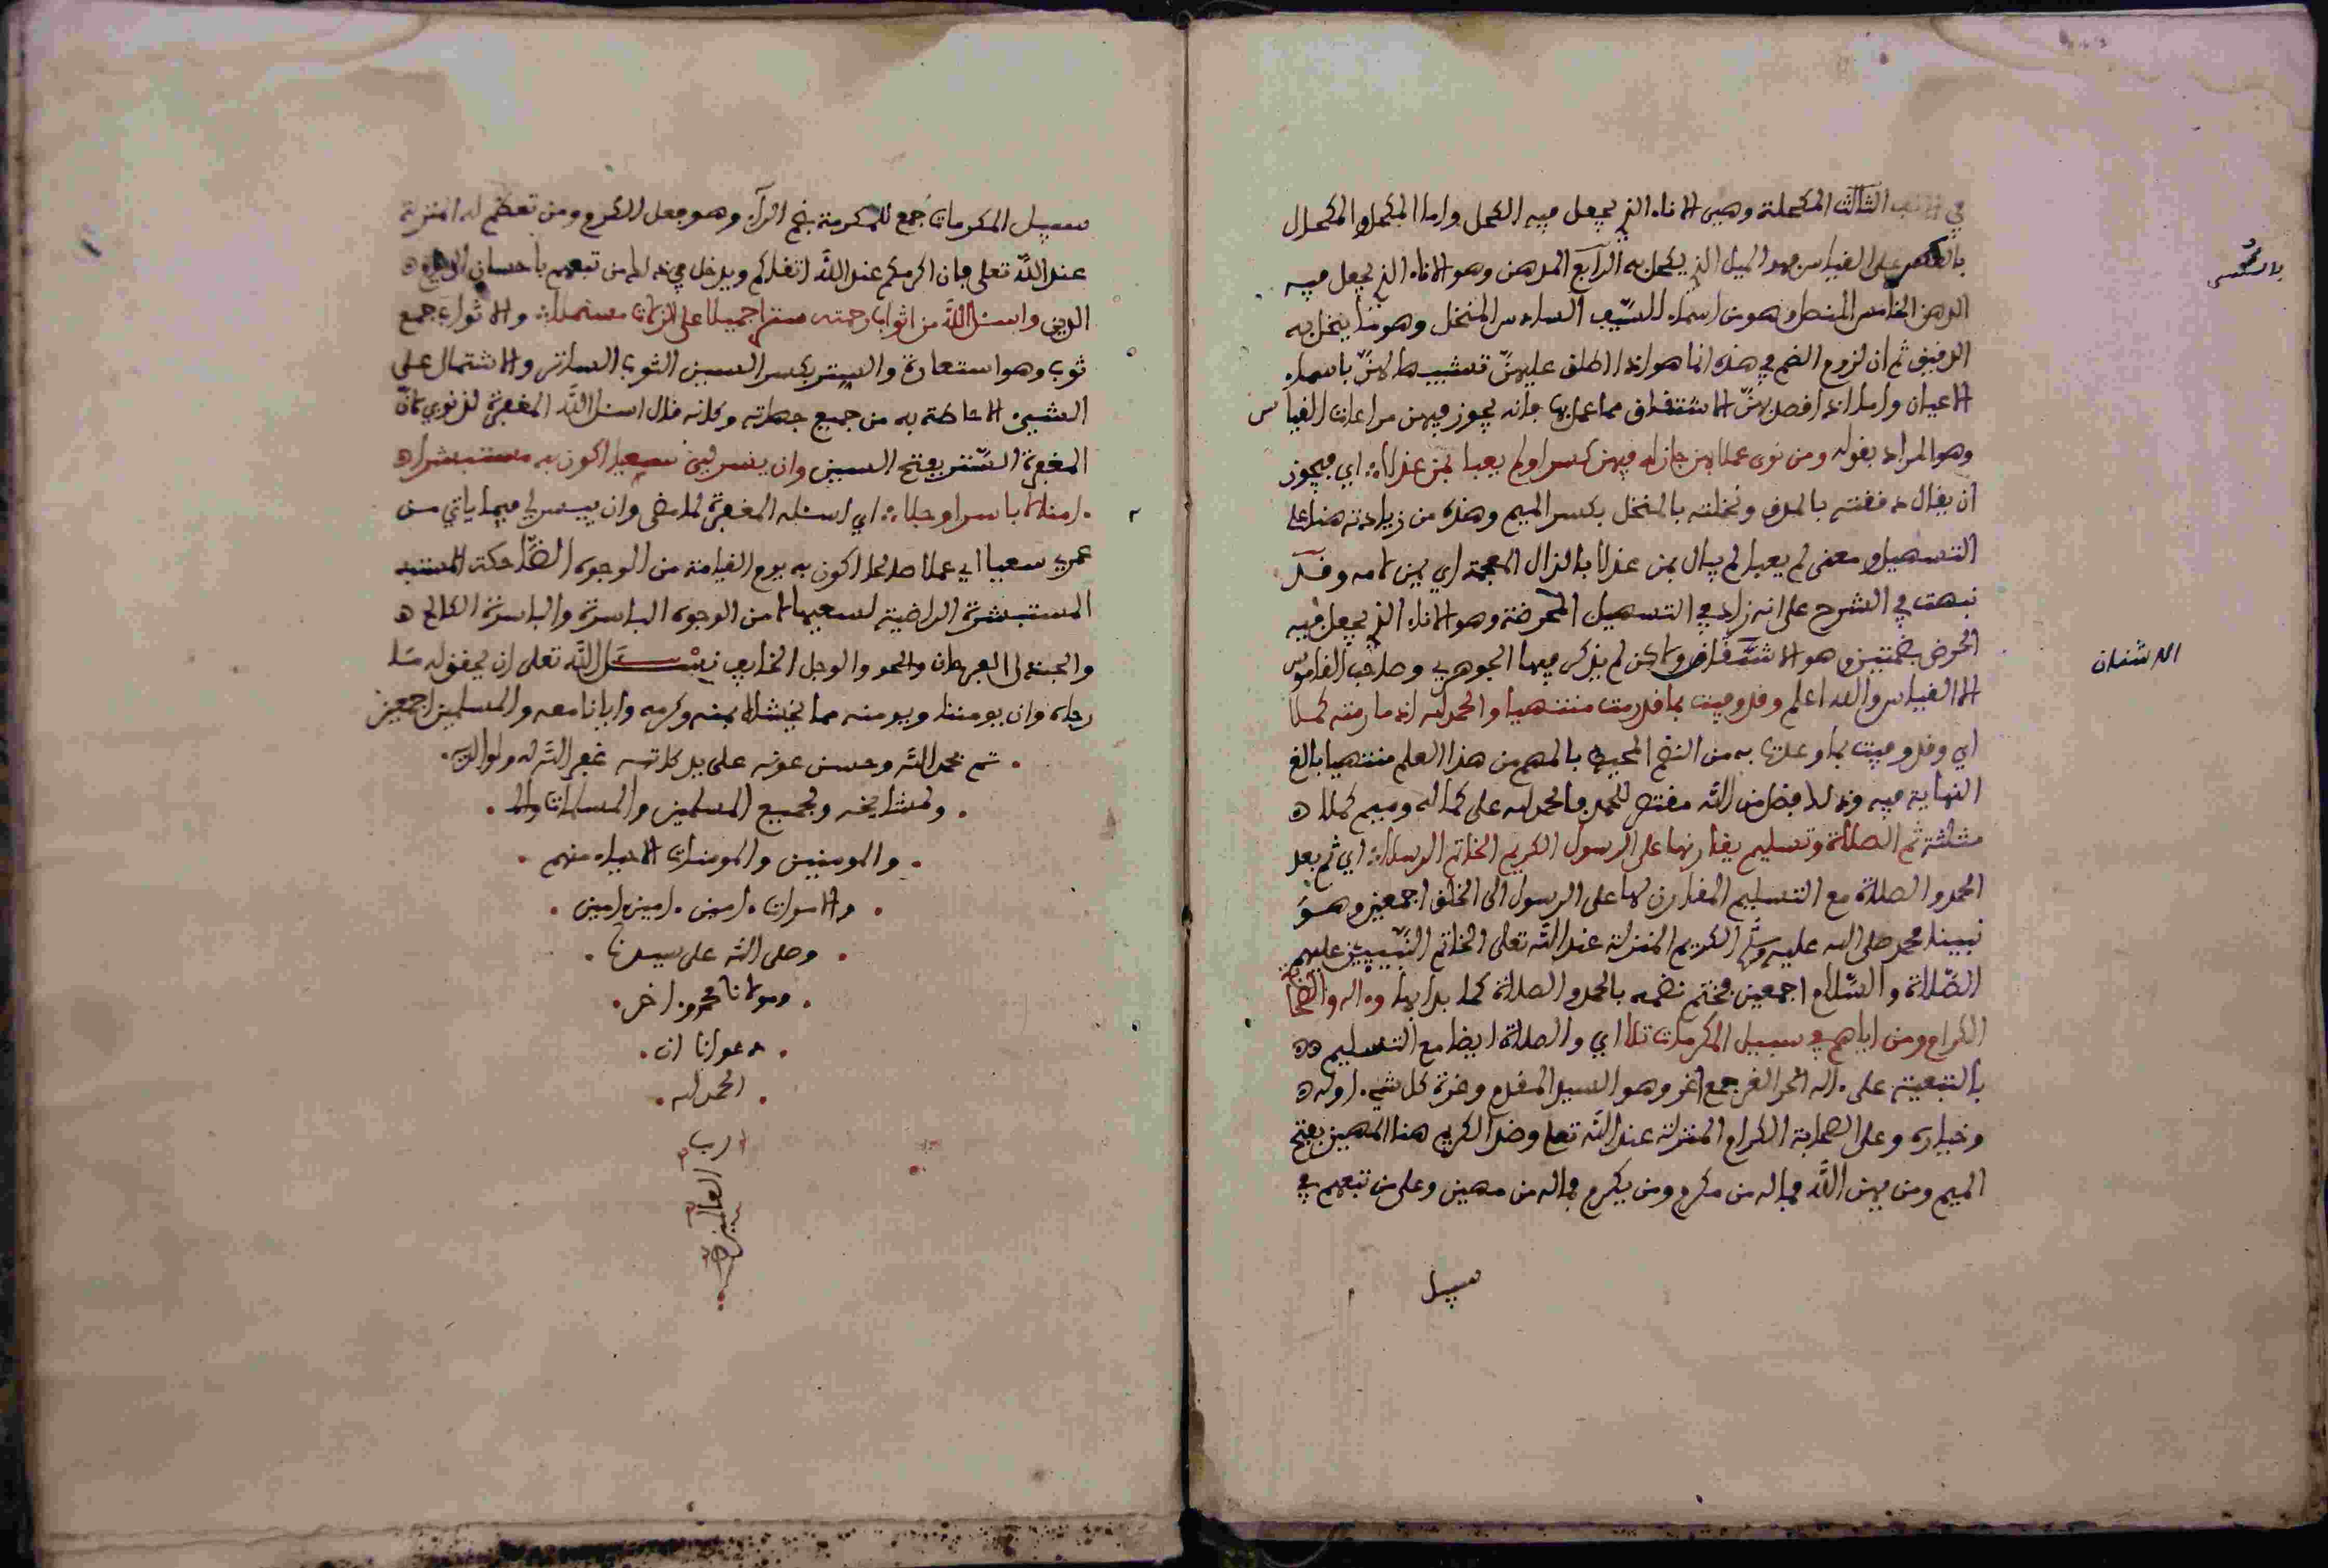 في الانف الثالث المكحلة وهي الاناء الذي يجعل فيه الكحل واما المكحل والمكحال
بالكسر على القياس فهو الميل الذي يكحل به الرابع المدهن وهو الاناء الذي يجعل فيه
الدهن الخامس المنصل وهو من اسماء السيف السادس المنخل وهو ما ينخل به
الدقيق ثم ان لزوم الضم في هذه انما هو اذا اطلق عليهن تشبيها لهن باسماء
الاعيان واما اذا قصد بهن الاشتقاق مما عمل بها فانه يجوز فيهن مراعات القياس
وهو المراد بقوله ومن نوى عملا بهن جاز له فيهن كسر ولم يعبا بمن عذلا اي فيجوز
ان يقال دققته بالمدق ونخلته بالمنخل بكسر الميم وهذه من زيادته هنا على
التسهيل ومعنى لم يعبا لم يبال بمن عذلا بالذال المعجمة اي بمن لامه وقد
نبهت في الشرح على انه زاد في التسهيل المحرضة وهو الاناء الذي يجعل فيه
الحرض بضمتين وهو الاشنان ولكن لم يذكر فيها الجوهري وصاحب القاموس
الا القياس والله اعلم وقد وفيت بما قد رمت منتهيا والحمد لله اذ ما رمته كملا
اي وقد وفيت بما وعدت به من النظم المحيط بالمهم من هذا العلم منتهيا بالغ
النهاية فيه وذلك فضل من الله مقتض للحمد فالحمد لله على كماله وميم كملا
مثلثة ثم الصلاة وتسليم يقارنها على الرسول الكريم الخاتم الرسلا اي ثم بعد
الحمد والصلاة مع التسليم المقارن لها على الرسول الى الخلق اجمعين وهو
نبينا محمد صلى الله عليه وسلم الكريم المنزلة عند الله تعلى الخاتم النبيين عليهم
الصلاة والسلام اجمعين فختم نظمه بالحمد والصلاة كما بدا بها وءاله والصحابة
الكرام ومن اياهم في سبيل المكرمات تلا اي والصلاة ايضا مع التسليم
بالتبعية على ءاله الغر الغر جمع اغر وهو السيد المقدم وغرة كل شيء اوله
وخياره وعلى الصحابة الكرام المنزلة عند الله تعلى وضد الكريم هنا المهين بفتح
الميم ومن يهن الله فما له من مكرم ومن يكرم فما له من مهين وعلى من تبعهم في
سبيل
بالكسر
الاشنان
سبيل المكرمات جمع للمكرمة بضم الراء وهو فعل الكرم ومن تعظم له المنزلة
عند الله تعلى فان اكرمكم عند الله اتقاكم ويدخل في ذلك من تبعهم باحسان الى يوم
الدين واسئل الله من اثواب رحمته سترا جميلا على الزلات مشتملا والاثواب جمع
ثوب وهو استعارة والستر بكسر السين الثوب الساتر والاشتمال على
الشيء الاحاطة به من جميع جهاته وكانه قال اسئل الله المغفرة لذنوبي لان
المغفرة الستر بفتح السين وان ييسر لي سعيا اكون به مستبشرا
ءامنا لا باسرا وجلا اي اسئله المغفرة لما مضى وان ييسر لي فيما ياتي من
عمري سعيا اي عملا صالحا اكون به يوم القيامة من الوجوه الضاحكة
المستبشرة الراضية لسعيها لا من الوجوه الباسرة والباسرة الكالح
والوجل الخايف نسئل الله تعلى ان يحقق له ما
رجاه وان يومننا ويومنه مما يخشاه بمنه وكرمه وايانا معه والمسلمين اجمعين
تم بحمد الله وحسن عونه على يد كاتبه غفر الله له ولوالديه
ولمشايخه ولجميع المسلمين والمسلمات
والمومنين والمومنات الاحياء منهم
والاموات ءامين ءامين ءامين
وصلى الله على سيدنا
ومولانا محمد وءاخر
دعوانا ان
الحمد لله
رب
العالمين